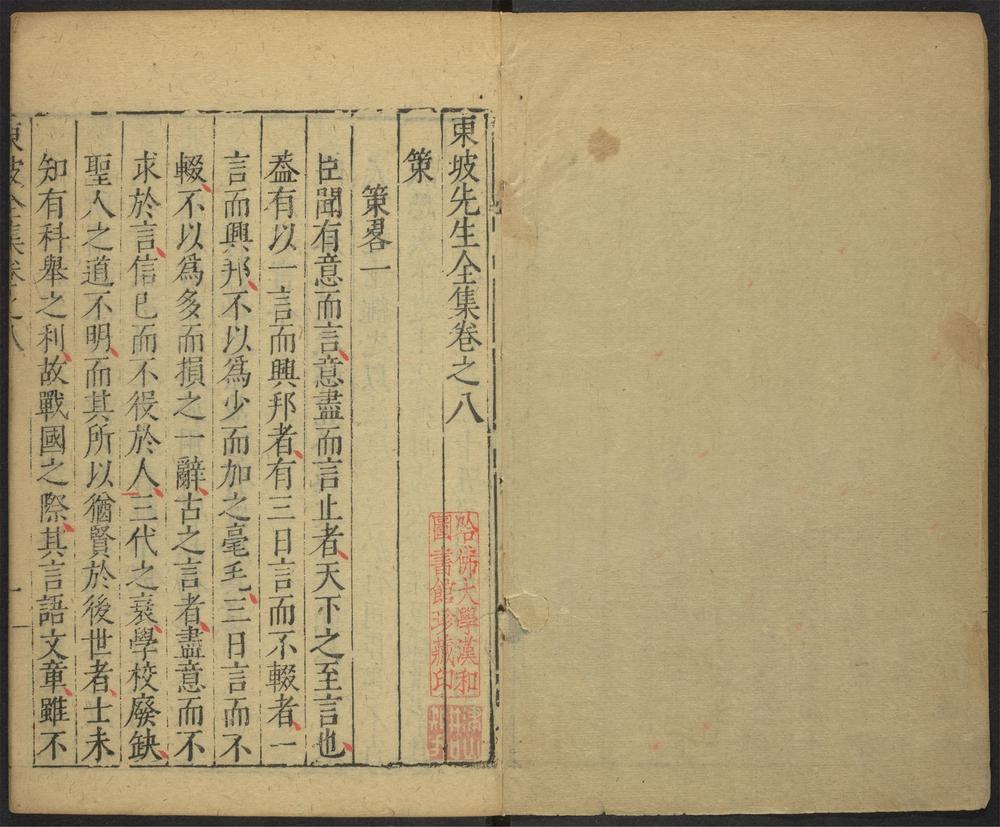 東坡先生全集卷之八
策
策畧一
臣聞有意而言意盡而言止者天下之至言也
葢有以一言而興邦者有三日言而不輟者一
言而興邦不以爲少而加之毫毛三日言而不
輟不以爲多而損之一辭古之言者盡意而不
求於言信已而不役於人三代之衰學校廢缺
聖人之道不明而其所以猶賢於後世者士未
知有科舉之利故戰國之際其言語文章雖不
東坡全集卷之八
一
哈佛大學漢和
圖書館珍藏印